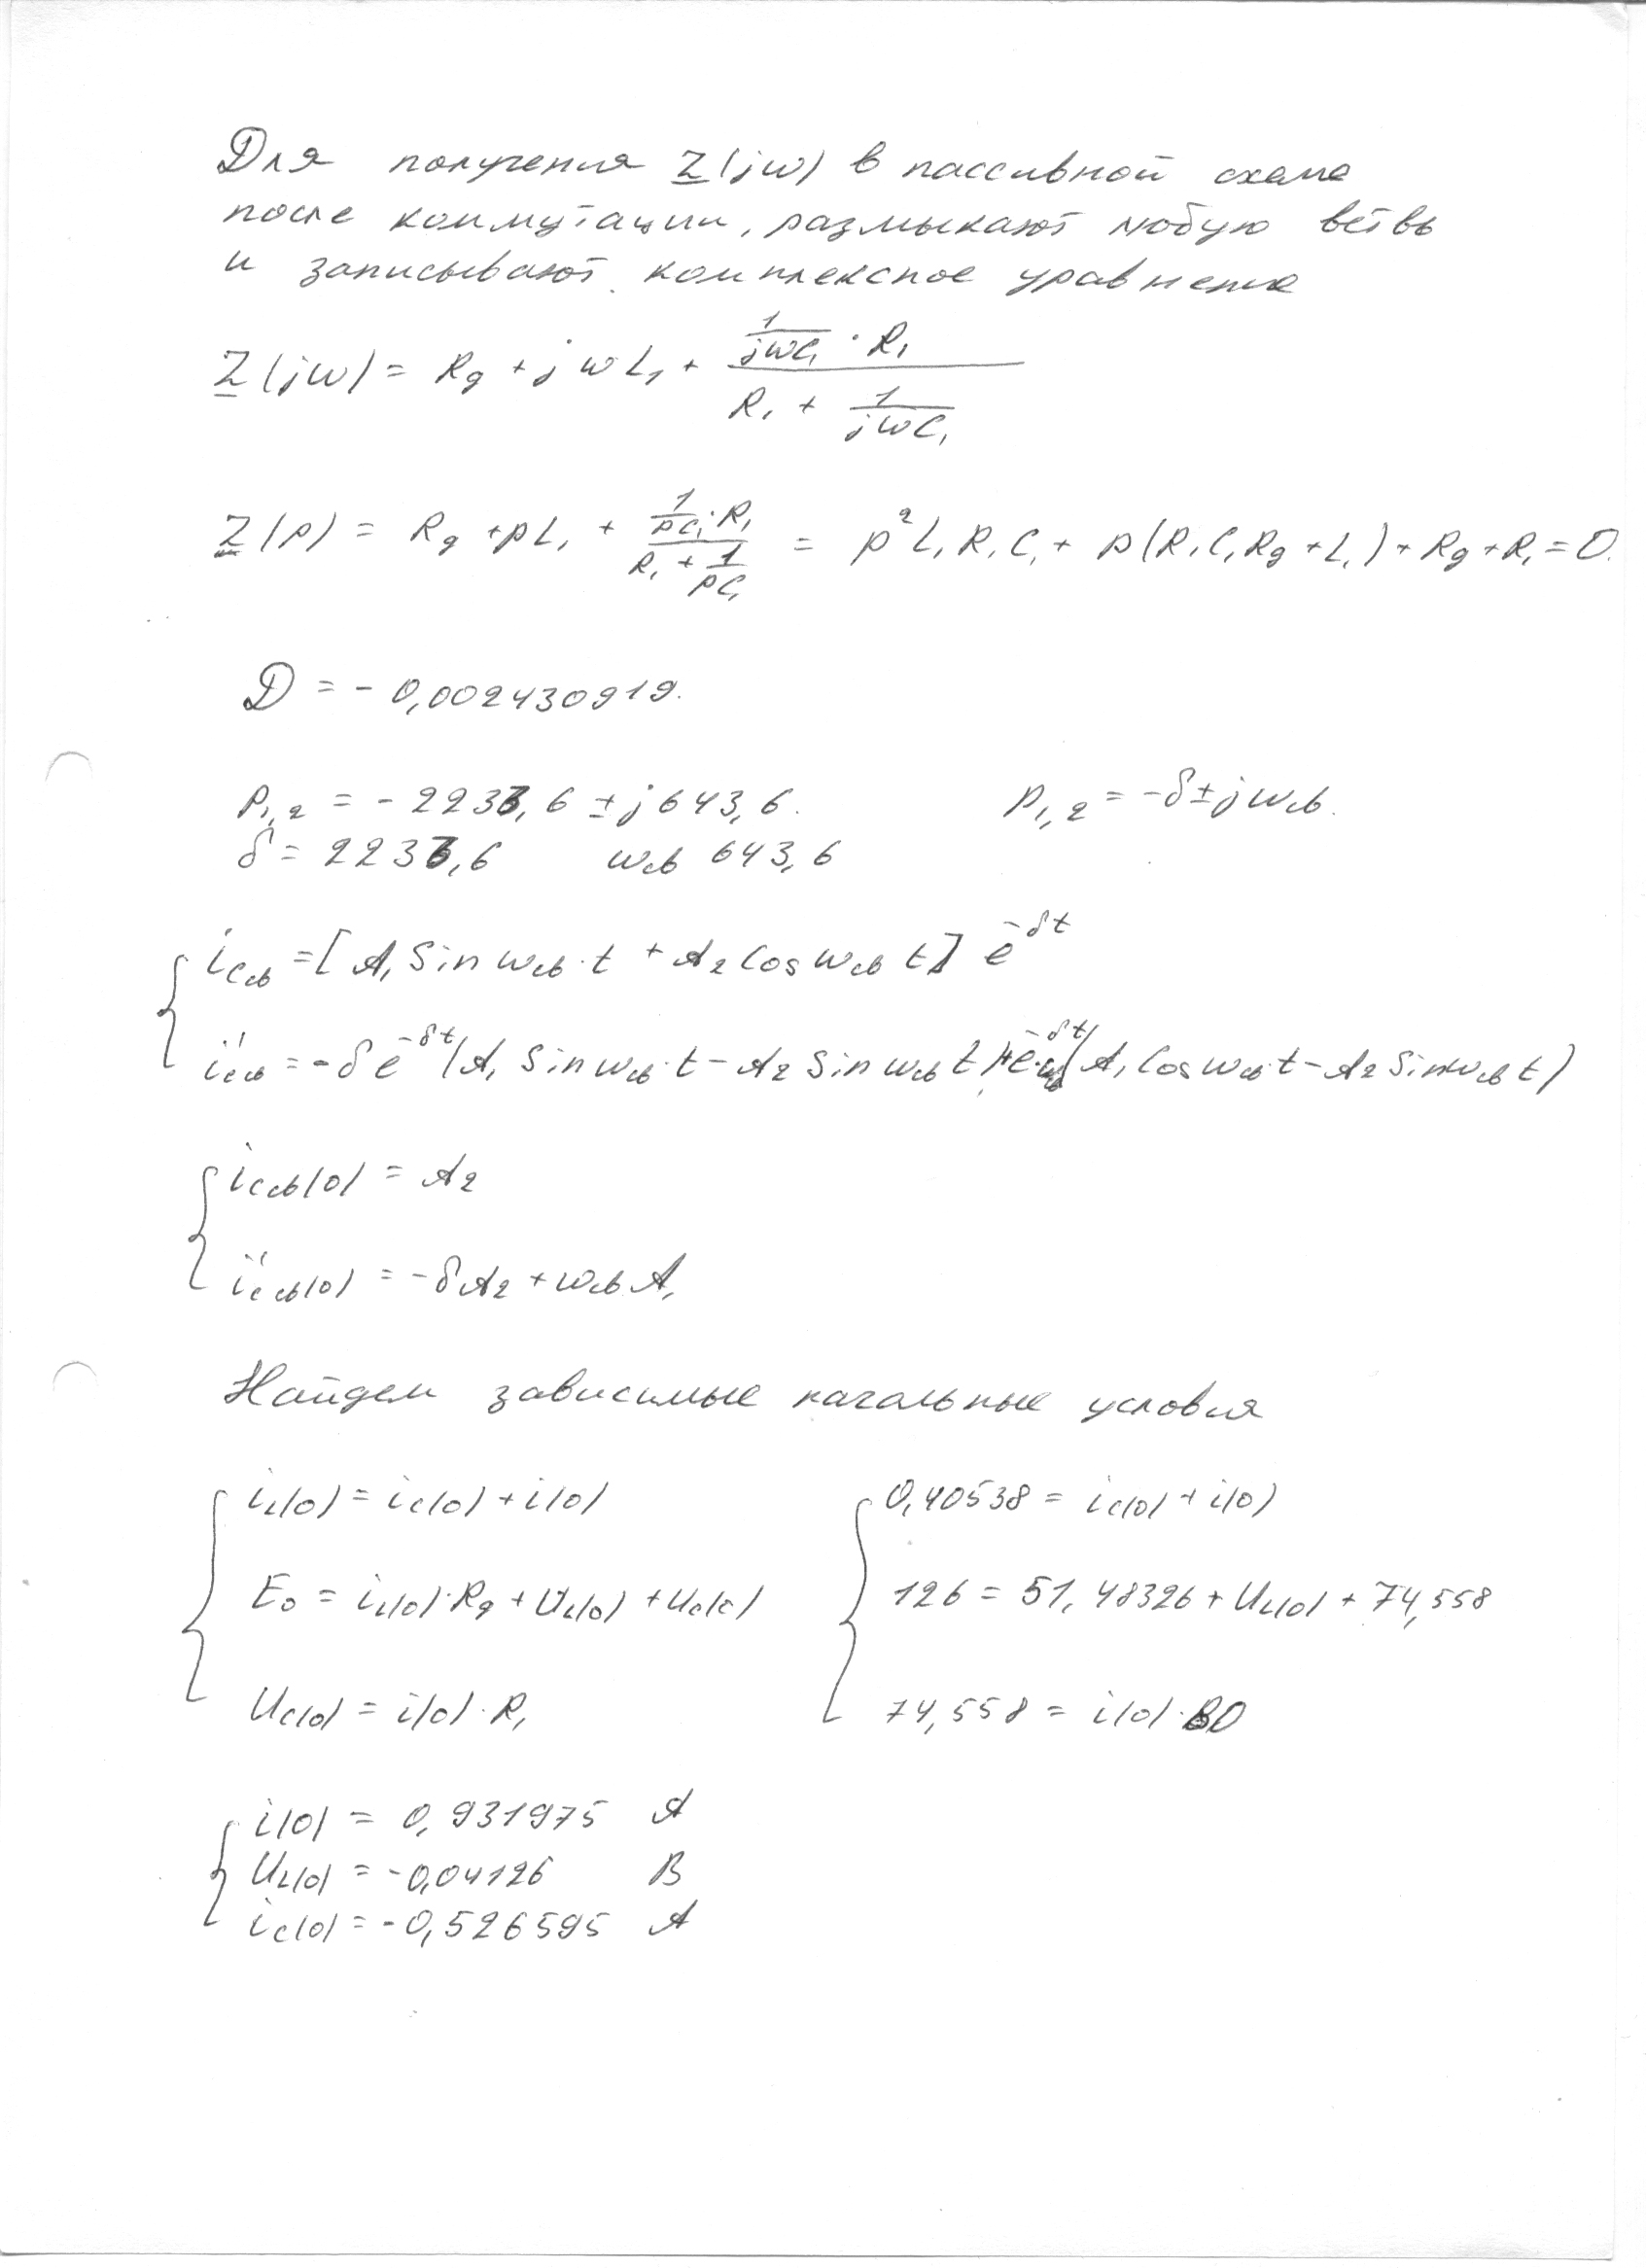 Для получения Z(jω) в пассивной схеме
после коммутации, размыкают любую ветвь
и записывают комплексное уравнение
Z(jω) = Rg + jωL₁ + (1/(jωC₁) · R₁)/(R₁ + 1/(jωC₁))
Z(p) = Rg + pL₁ + (1/(pC₁) · R₁)/(R₁ + 1/(pC₁)) = p²L₁R₁C₁ + p(R₁C₁Rg + L₁) + Rg + R₁ = 0.
D = - 0,002430919.
p₁,₂ = - 2233,6 ± j643,6. p₁,₂ = -δ ± jωсв.
δ = 2233,6 ωсв 643,6
iCсв = [A₁ Sin ωсв·t + A₂ Cos ωсв t] e^-δt
i'Cсв = -δe^-δt(A₁ Sin ωсв·t - A₂ Sin ωсв t) + e^-δt·ωсв(A₁ Cos ωсв·t - A₂ Sin ωсв t)
iCсв(0) = A₂
i'Cсв(0) = -δA₂ + ωсв A₁
Найдем зависимые начальные условия
iL(0) = iC(0) + i(0) 0,40538 = iC(0) + i(0)
E₀ = iL(0)·Rg + UL(0) + UC(0) 126 = 51,48326 + UL(0) + 74,558
UC(0) = i(0)·R₁ 74,558 = i(0)·80
i(0) = 0,931975 А
UL(0) = -0,04126 В
iC(0) = -0,526595 А